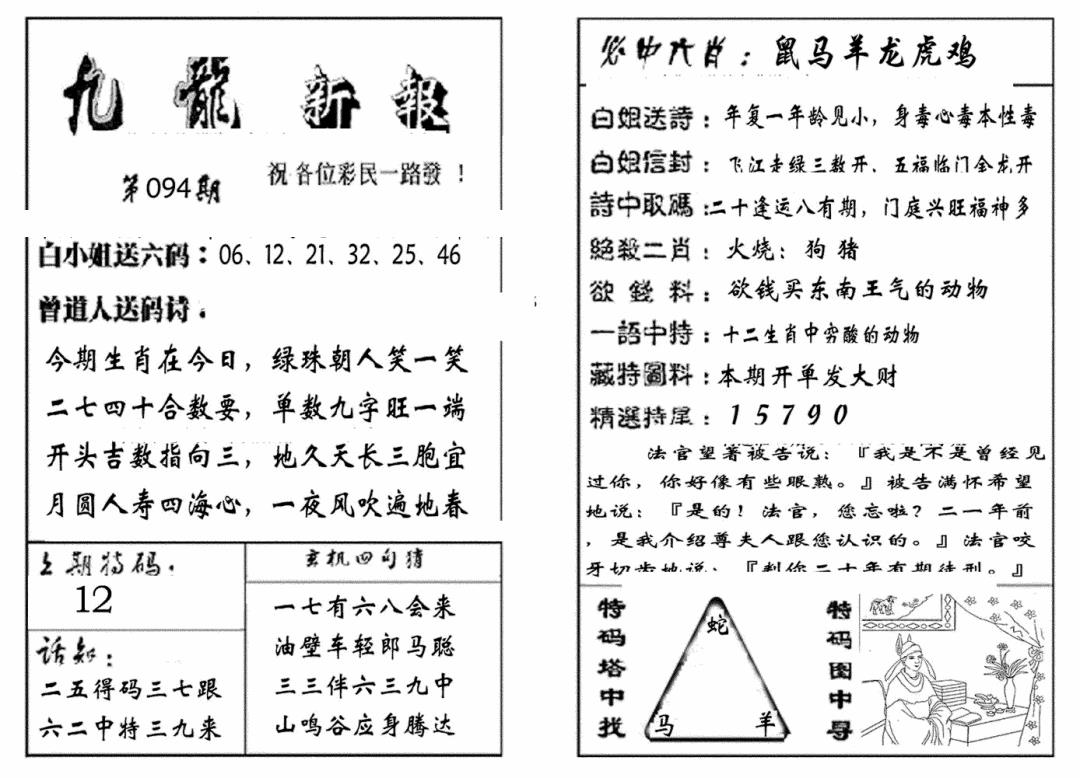 九龍新報
第094期
祝各位彩民一路發！
白小姐送六码：06、12、21、32、25、46
曾道人送码诗：
今期生肖在今日，绿珠朝人笑一笑
二七四十合数要，单数九字旺一端
开头吉数指向三，地久天长三胞宜
月圆人寿四海心，一夜风吹遍地春
上期特码：
12
话知：
二五得码三七跟
六二中特三九来
玄机四句猜
一七有六八会来
油壁车轻郎马聪
三三伴六三九中
山鸣谷应身腾达
必中六肖：鼠马羊龙虎鸡
白姐送詩：年复一年龄见小，身毒心毒本性毒
白姐信封：飞江走绿三数开，五福临门金龙开
詩中取碼：二十逢运八有期，门庭兴旺福神多
絕殺二肖：火烧：狗猪
欲錢料：欲钱买东南王气的动物
一語中特：十二生肖中穷酸的动物
藏特圖料：本期开单发大财
精選特尾：15790
法官望著被告说：『我是不是曾经见
过你，你好像有些眼熟。』被告满怀希望
地说：『是的！法官，您忘啦？二一年前
，是我介绍尊夫人跟您认识的。』法官咬
牙切齿地说：『判你二十年有期徒刑。』
特码塔中找
蛇
马
羊
特码图中寻